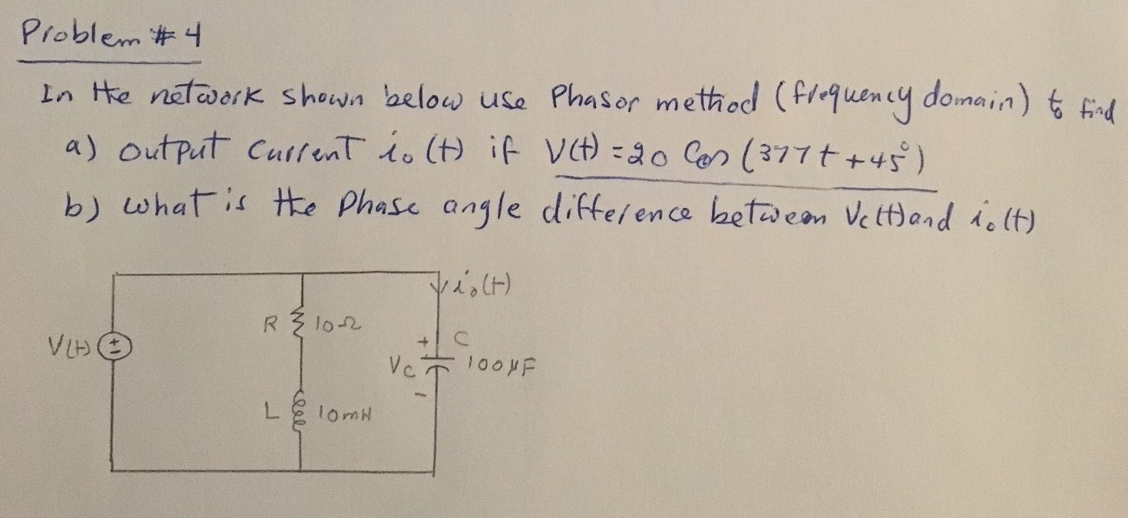 Problem # 4
In the network shown below use Phasor method (frequency domain) to find
a) output current io(t) if V(t) = 20 Cos (377t + 45°)
b) what is the Phase angle difference between Vc(t) and io(t)
io(t)
R 10Ω
V(t) ±
+ C
Vc 100μF
-
L 10mH